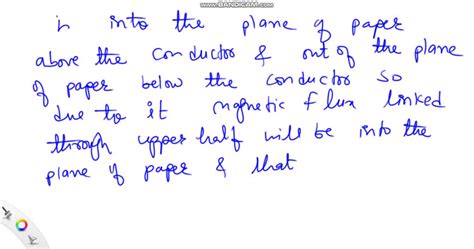 www.BANDICAM.com
is into the plane of paper
above the conductor & out of the plane
of paper below the conductor so
due to it magnetic flux linked
through upper half will be into the
plane of paper & that